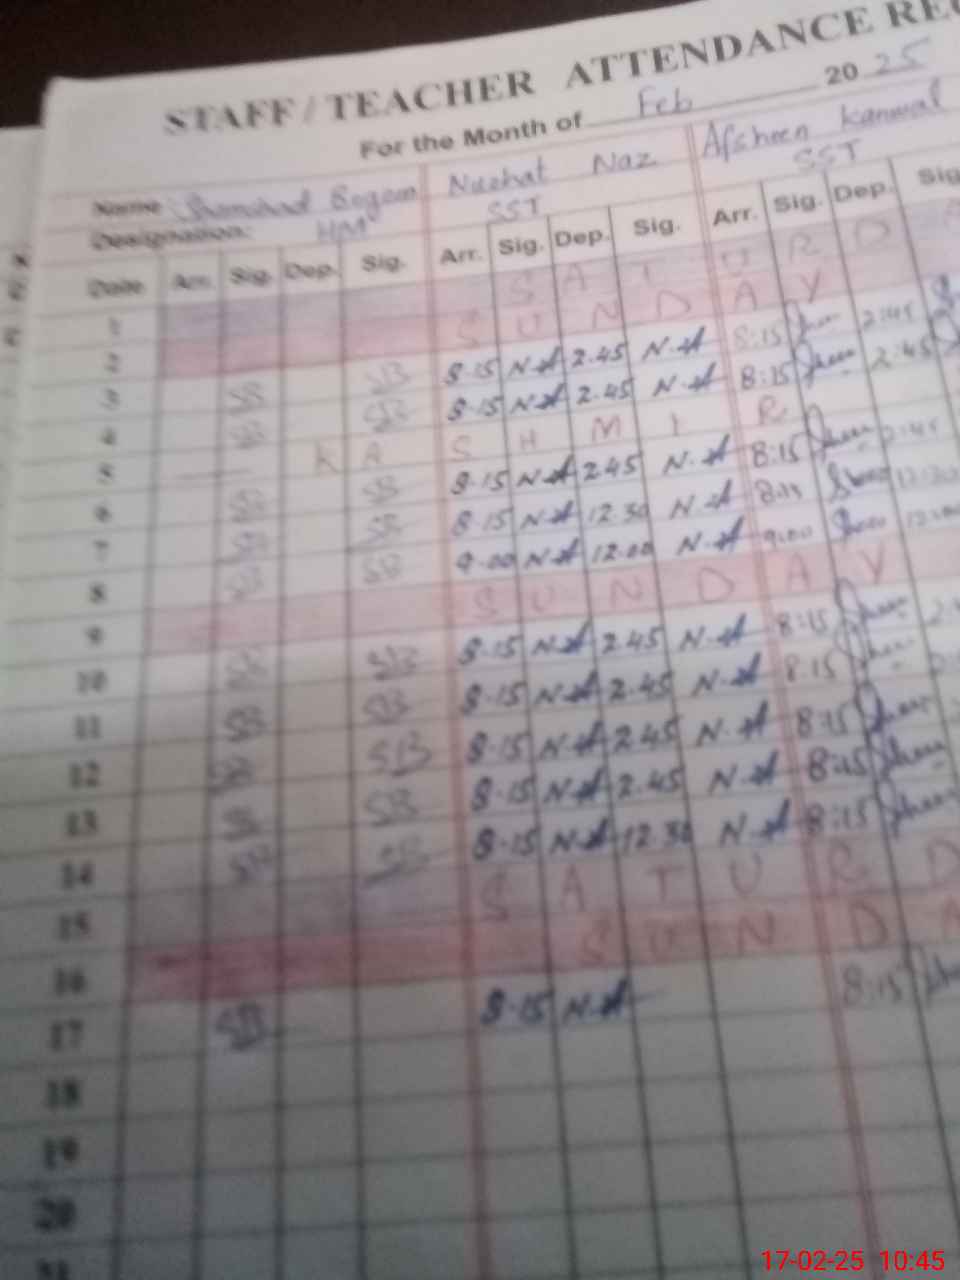 STAFF / TEACHER ATTENDANCE RE
For the Month of Feb 20 25
Name Begam Nuzhat Naz Afsheen Kanwal
Designation: HM SST SST
Date Arr. Sig. Dep. Sig. Arr. Sig. Dep. Sig. Arr. Sig. Dep. Sig
1 S A T U R D
2 S U N D A Y
3 SB SB 8.15 N.A 2.45 N.A 8:15 2:45
4 SB SB 8.15 N.A 2.45 N.A 8:15 2:45
5 K A S H M I R
6 SB SB 8.15 N.A 2.45 N.A 8:15 2:45
7 SB SB 8.15 N.A 12.30 N.A 8:15 12:30
8 SB SB 9.00 N.A 12.00 N.A 9:00 12:00
9 S U N D A Y
10 SB SB 8.15 N.A 2.45 N.A 8:15
11 SB SB 8.15 N.A 2.45 N.A 8:15
12 SB SB 8.15 N.A 2.45 N.A 8:15
13 SB SB 8.15 N.A 2.45 N.A 8:15
14 SB SB 8.15 N.A 12.30 N.A 8:15
15 S A T U R D
16 S U N D A
17 SB 8.15 N.A 8:15
18
19
20
21
17-02-25 10:45